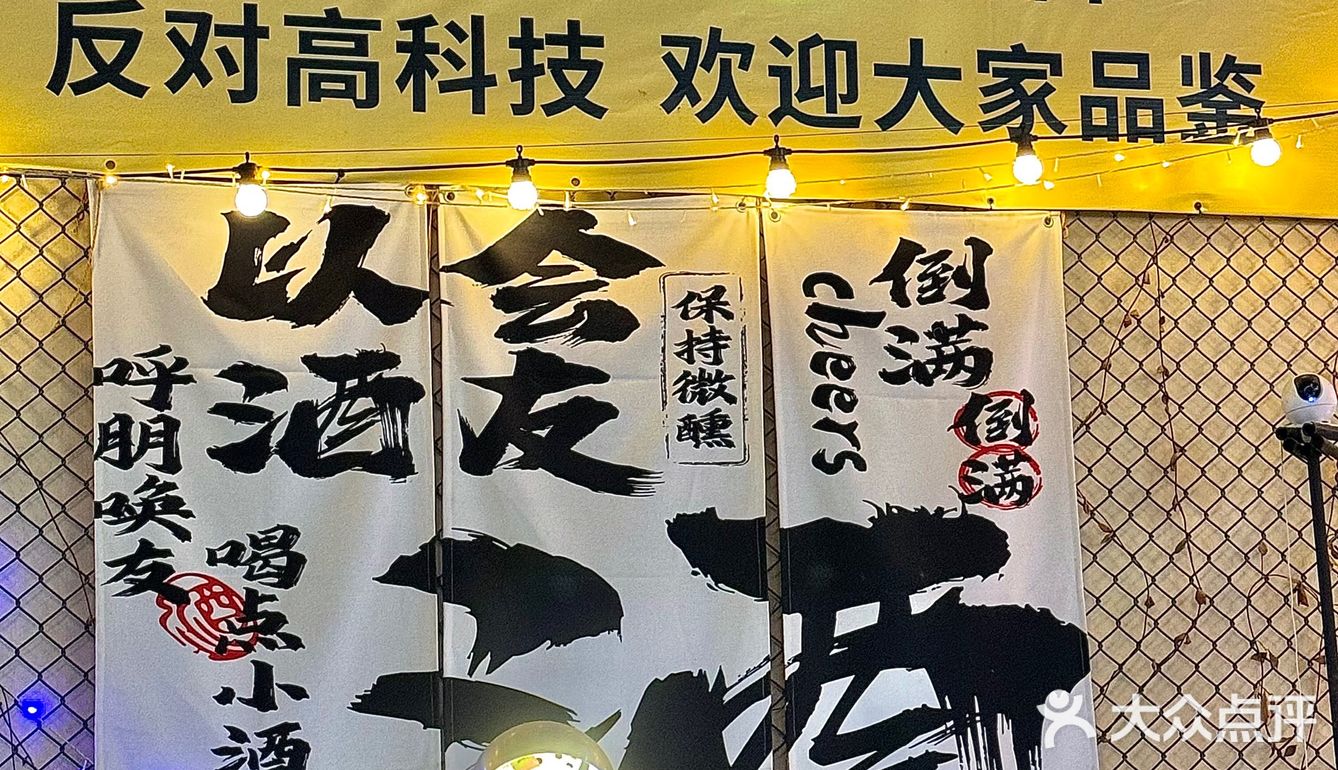 反对高科技 欢迎大家品鉴
以酒
会友
呼朋唤友
喝点小酒
保持微醺
倒满
倒满
cheers
酒
大众点评